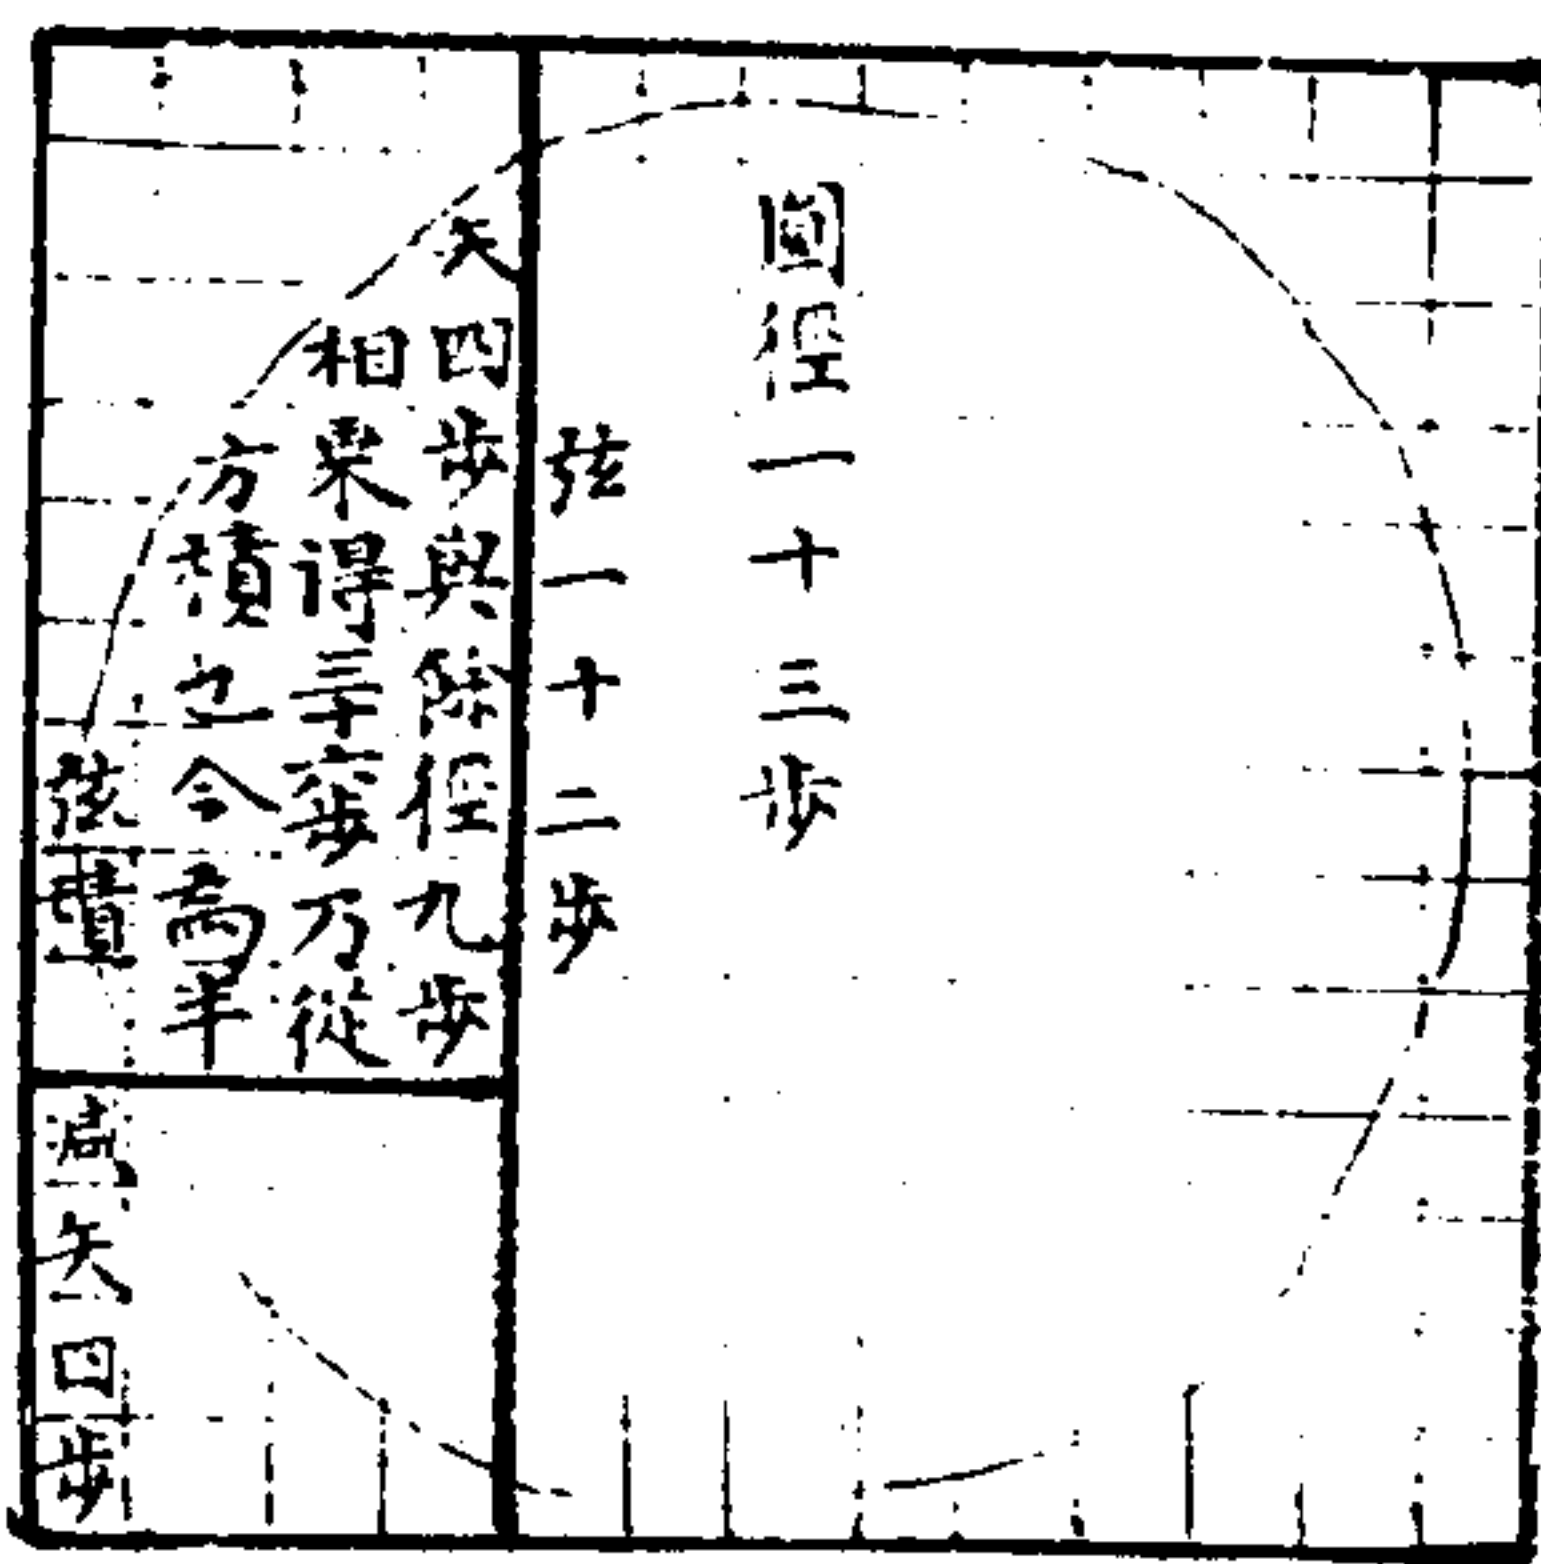 圓徑一十三步
弦一十二步
矢四步與除徑九步
相乘得三十六步乃從
方積也今為半
弦積
減矢四步